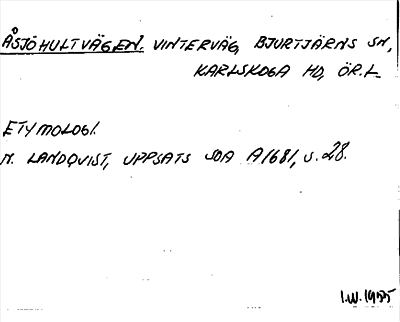 ÅSJÖHULTVÄGEN. VINTERVÄG, BJURTJÄRNS SN,
KARLSKOGA HD, ÖR.L
ETYMOLOGI.
N. LANDQVIST, UPPSATS SOA A1681, s. 28.
I.W. 1955